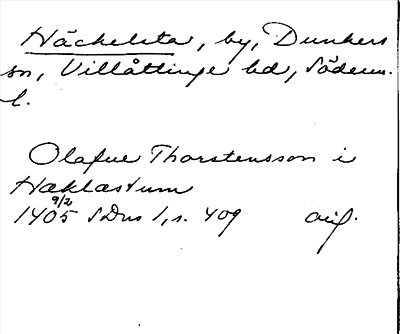 Häckelsta, by, Dunkers
sn, Villåttinge hd, Söderm.
l.
Olafue Thorstensson i
Hæklastum
9/2
1405 SDns 1, s. 409 avf.